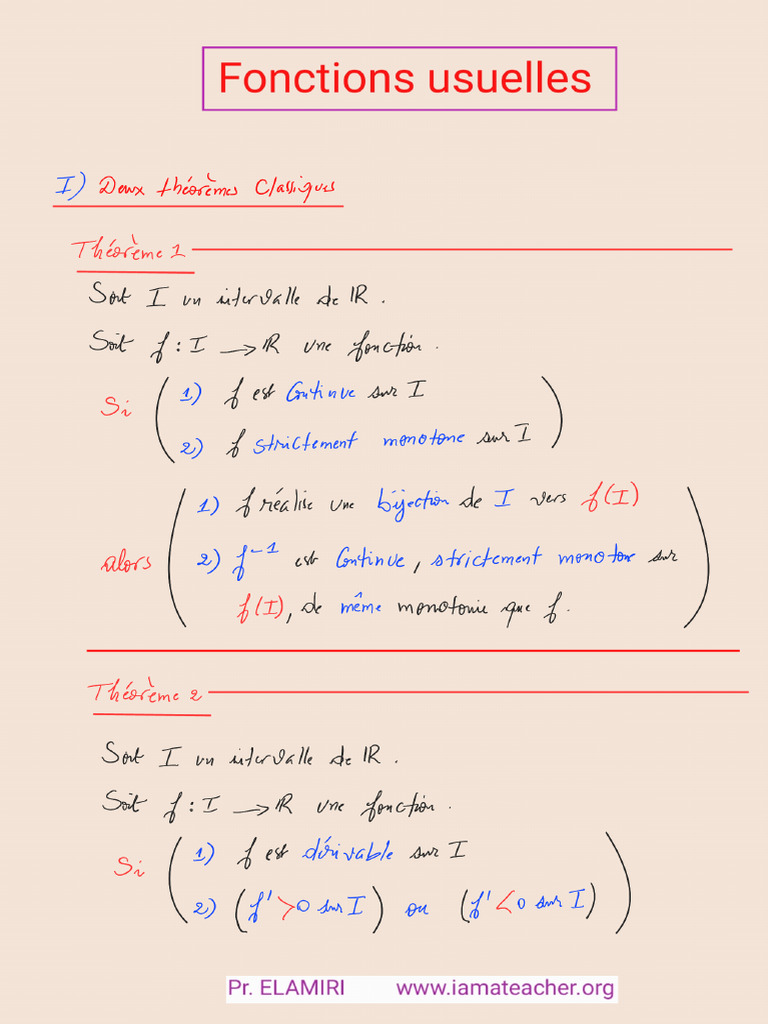 Fonctions usuelles
I) Deux théorèmes Classiques
Théorème 1
Soit I un intervalle de ℝ.
Soit f : I → ℝ une fonction.
Si ( 1) f est Continue sur I
2) f strictement monotone sur I )
alors ( 1) f réalise une bijection de I vers f(I)
2) f⁻¹ est Continue, strictement monotone sur
f(I), de même monotonie que f. )
Théorème 2
Soit I un intervalle de ℝ.
Soit f : I → ℝ une fonction.
Si ( 1) f est dérivable sur I
2) (f' > 0 sur I) ou (f' < 0 sur I) )
Pr. ELAMIRI www.iamateacher.org